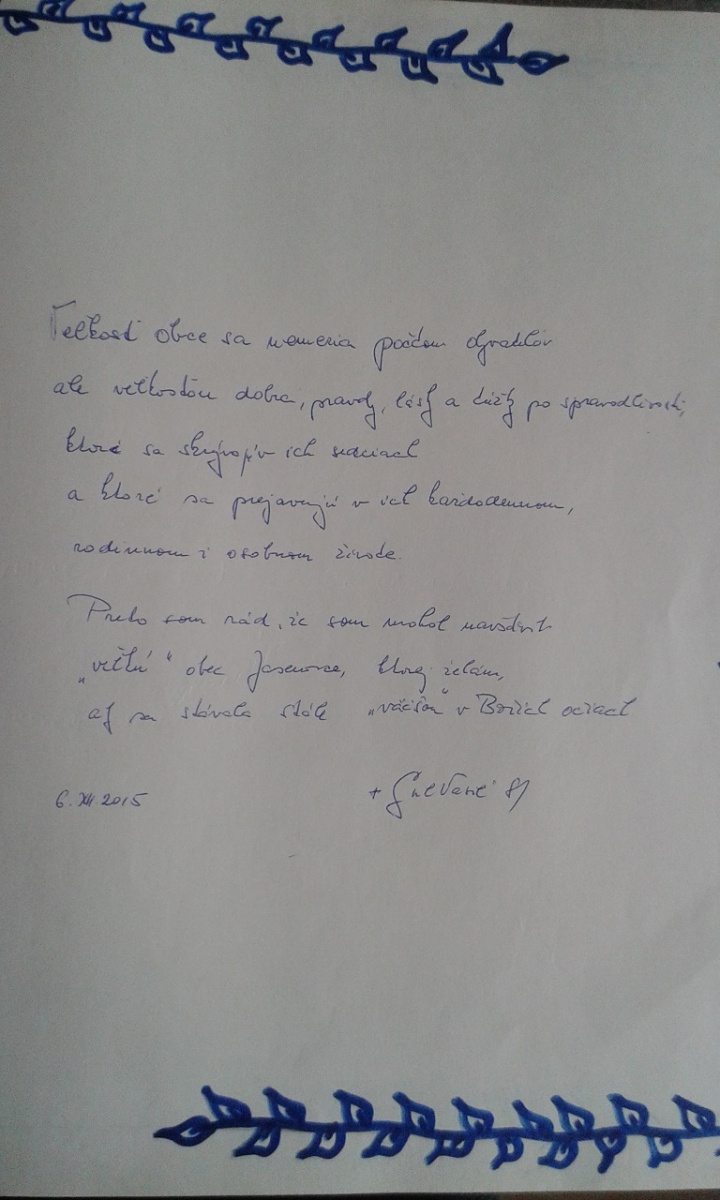 Veľkosť obce sa nemeria počtom obyvateľov
ale veľkosťou dobra, pravdy, lásky a túžby po spravodlivosti,
ktoré sa skrývajú v ich srdciach
a ktoré sa prejavujú v ich každodennom,
rodinnom i osobnom živote.
Preto som rád, že som mohol navštíviť
„veľkú“ obec Jasenovce, ktorej želám,
aj sa stávala stále „väčšou“ v Božích očiach
6. XII. 2015